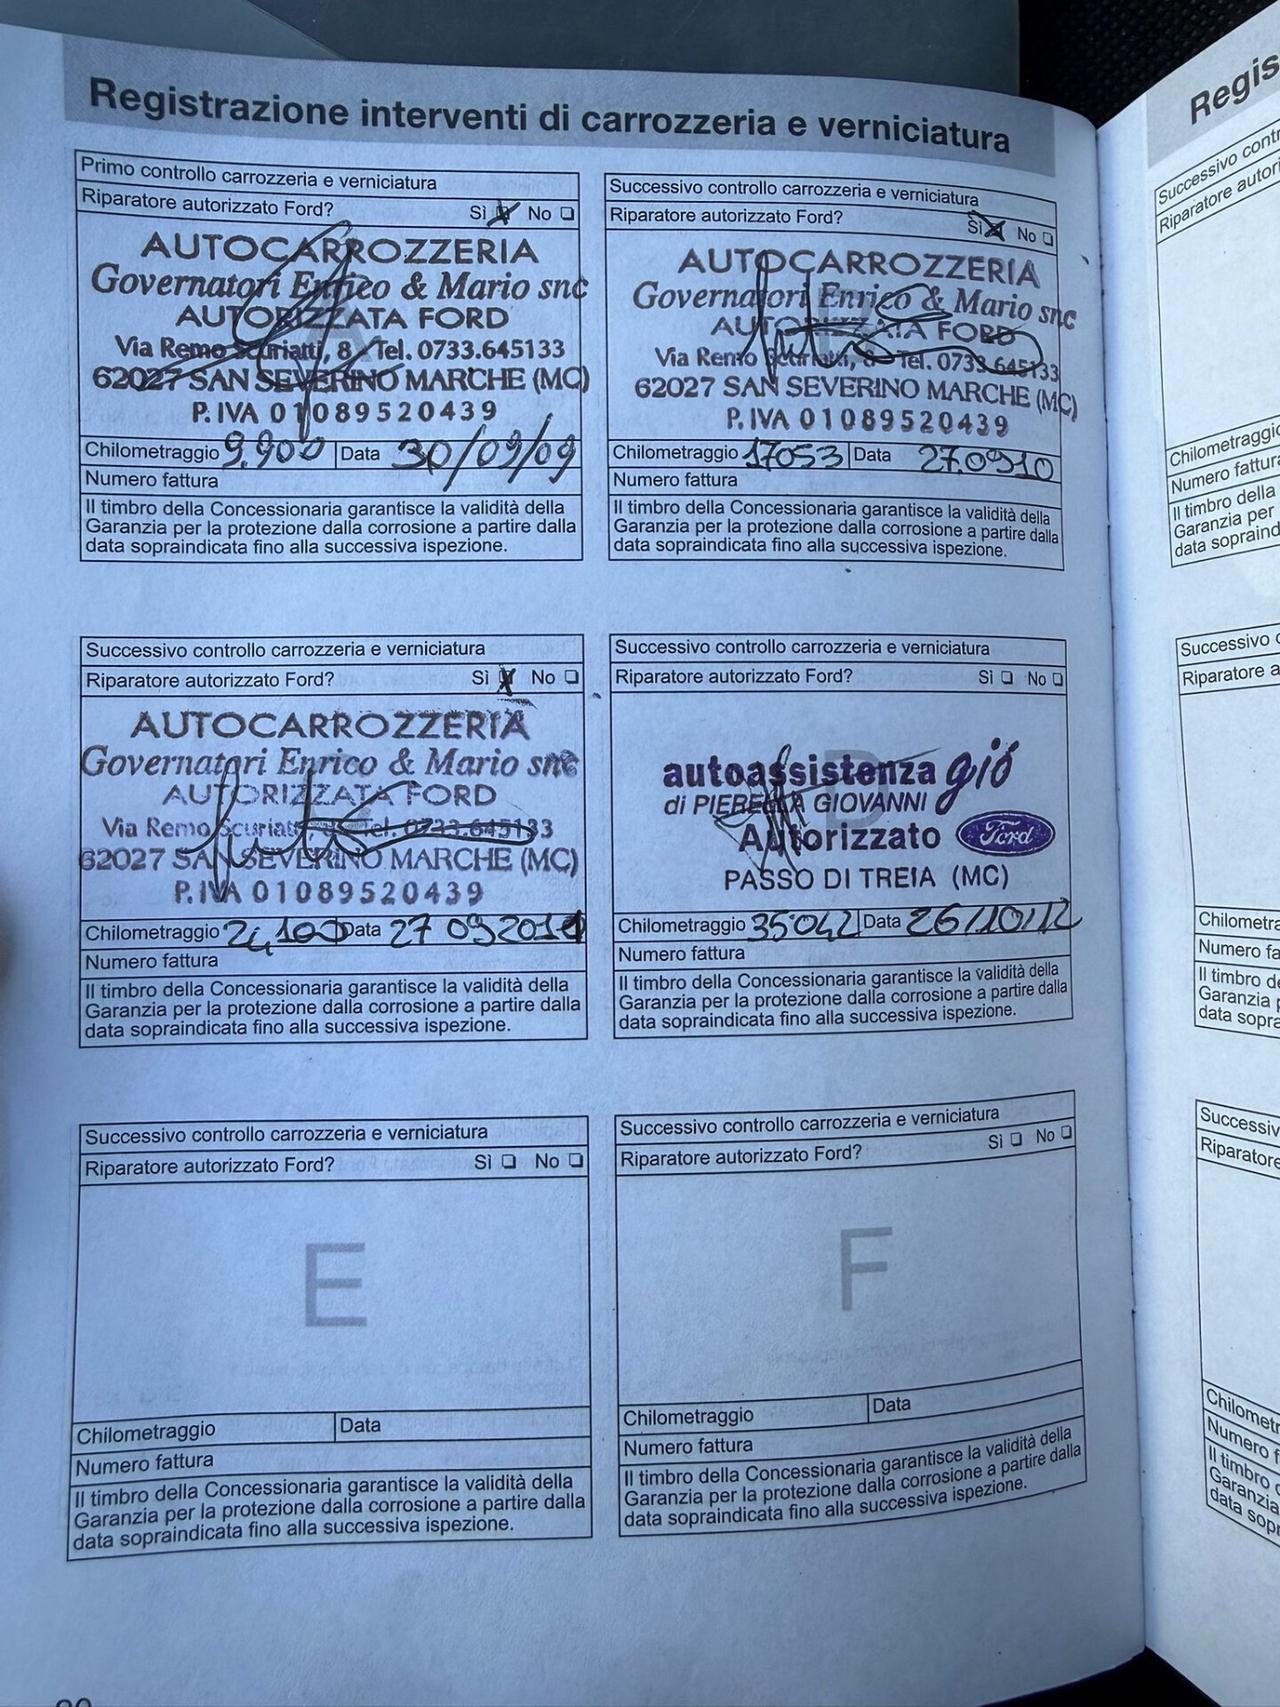 Registrazione interventi di carrozzeria e verniciatura
Primo controllo carrozzeria e verniciatura
Riparatore autorizzato Ford? Sì No
AUTOCARROZZERIA
Governatori Enrico & Mario snc
AUTORIZZATA FORD
Via Remo Scuriatti, 8 Tel. 0733.645133
62027 SAN SEVERINO MARCHE (MC)
P. IVA 01089520439
Chilometraggio 9.900 Data 30/09/09
Numero fattura
Il timbro della Concessionaria garantisce la validità della
Garanzia per la protezione dalla corrosione a partire dalla
data sopraindicata fino alla successiva ispezione.
Successivo controllo carrozzeria e verniciatura
Riparatore autorizzato Ford? Sì No
AUTOCARROZZERIA
Governatori Enrico & Mario snc
AUTORIZZATA FORD
Via Remo Scuriatti, 8 Tel. 0733.645133
62027 SAN SEVERINO MARCHE (MC)
P. IVA 01089520439
Chilometraggio 17053 Data 27.09.10
Numero fattura
Il timbro della Concessionaria garantisce la validità della
Garanzia per la protezione dalla corrosione a partire dalla
data sopraindicata fino alla successiva ispezione.
Successivo controllo carrozzeria e verniciatura
Riparatore autorizzato Ford? Sì No
AUTOCARROZZERIA
Governatori Enrico & Mario snc
AUTORIZZATA FORD
Via Remo Scuriatti, 8 Tel. 0733.645133
62027 SAN SEVERINO MARCHE (MC)
P. IVA 01089520439
Chilometraggio 24,100 Data 27 09 2011
Numero fattura
Il timbro della Concessionaria garantisce la validità della
Garanzia per la protezione dalla corrosione a partire dalla
data sopraindicata fino alla successiva ispezione.
Successivo controllo carrozzeria e verniciatura
Riparatore autorizzato Ford? Sì No
D
autoassistenza giò
di PIERELLA GIOVANNI
Autorizzato Ford
PASSO DI TREIA (MC)
Chilometraggio 35042 Data 26/10/12
Numero fattura
Il timbro della Concessionaria garantisce la validità della
Garanzia per la protezione dalla corrosione a partire dalla
data sopraindicata fino alla successiva ispezione.
Successivo controllo carrozzeria e verniciatura
Riparatore autorizzato Ford? Sì No
E
Chilometraggio Data
Numero fattura
Il timbro della Concessionaria garantisce la validità della
Garanzia per la protezione dalla corrosione a partire dalla
data sopraindicata fino alla successiva ispezione.
Successivo controllo carrozzeria e verniciatura
Riparatore autorizzato Ford? Sì No
F
Chilometraggio Data
Numero fattura
Il timbro della Concessionaria garantisce la validità della
Garanzia per la protezione dalla corrosione a partire dalla
data sopraindicata fino alla successiva ispezione.
Regis
Successivo contr
Riparatore autori
Chilometraggio
Numero fattura
Il timbro della
Garanzia per
data sopraind
Successivo
Riparatore a
Chilometra
Numero fa
Il timbro de
Garanzia
data sopra
Successiv
Riparatore
Chilomet
Numero f
Il timbro
Garanzia
data sop